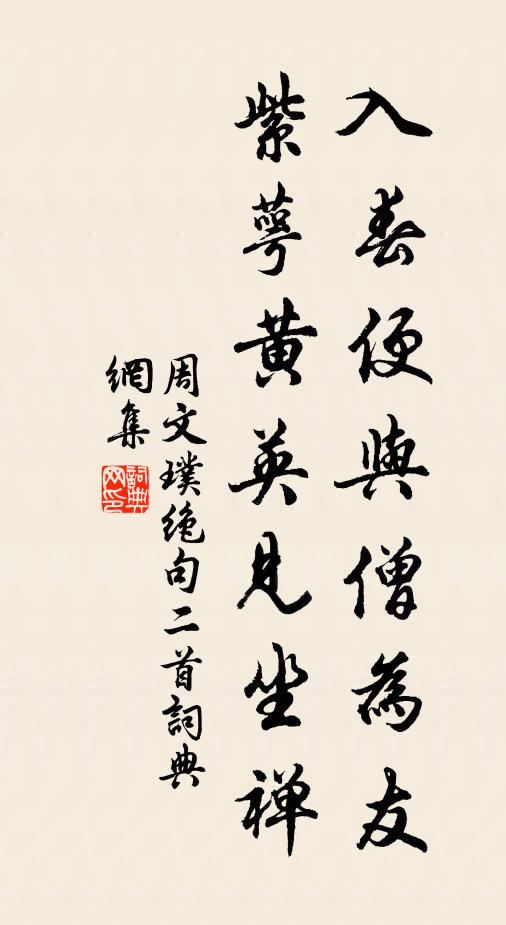 入春便與僧為友
紫萼黃英見坐禅
周文璞絶句二首詞典
網集
詞典
网印